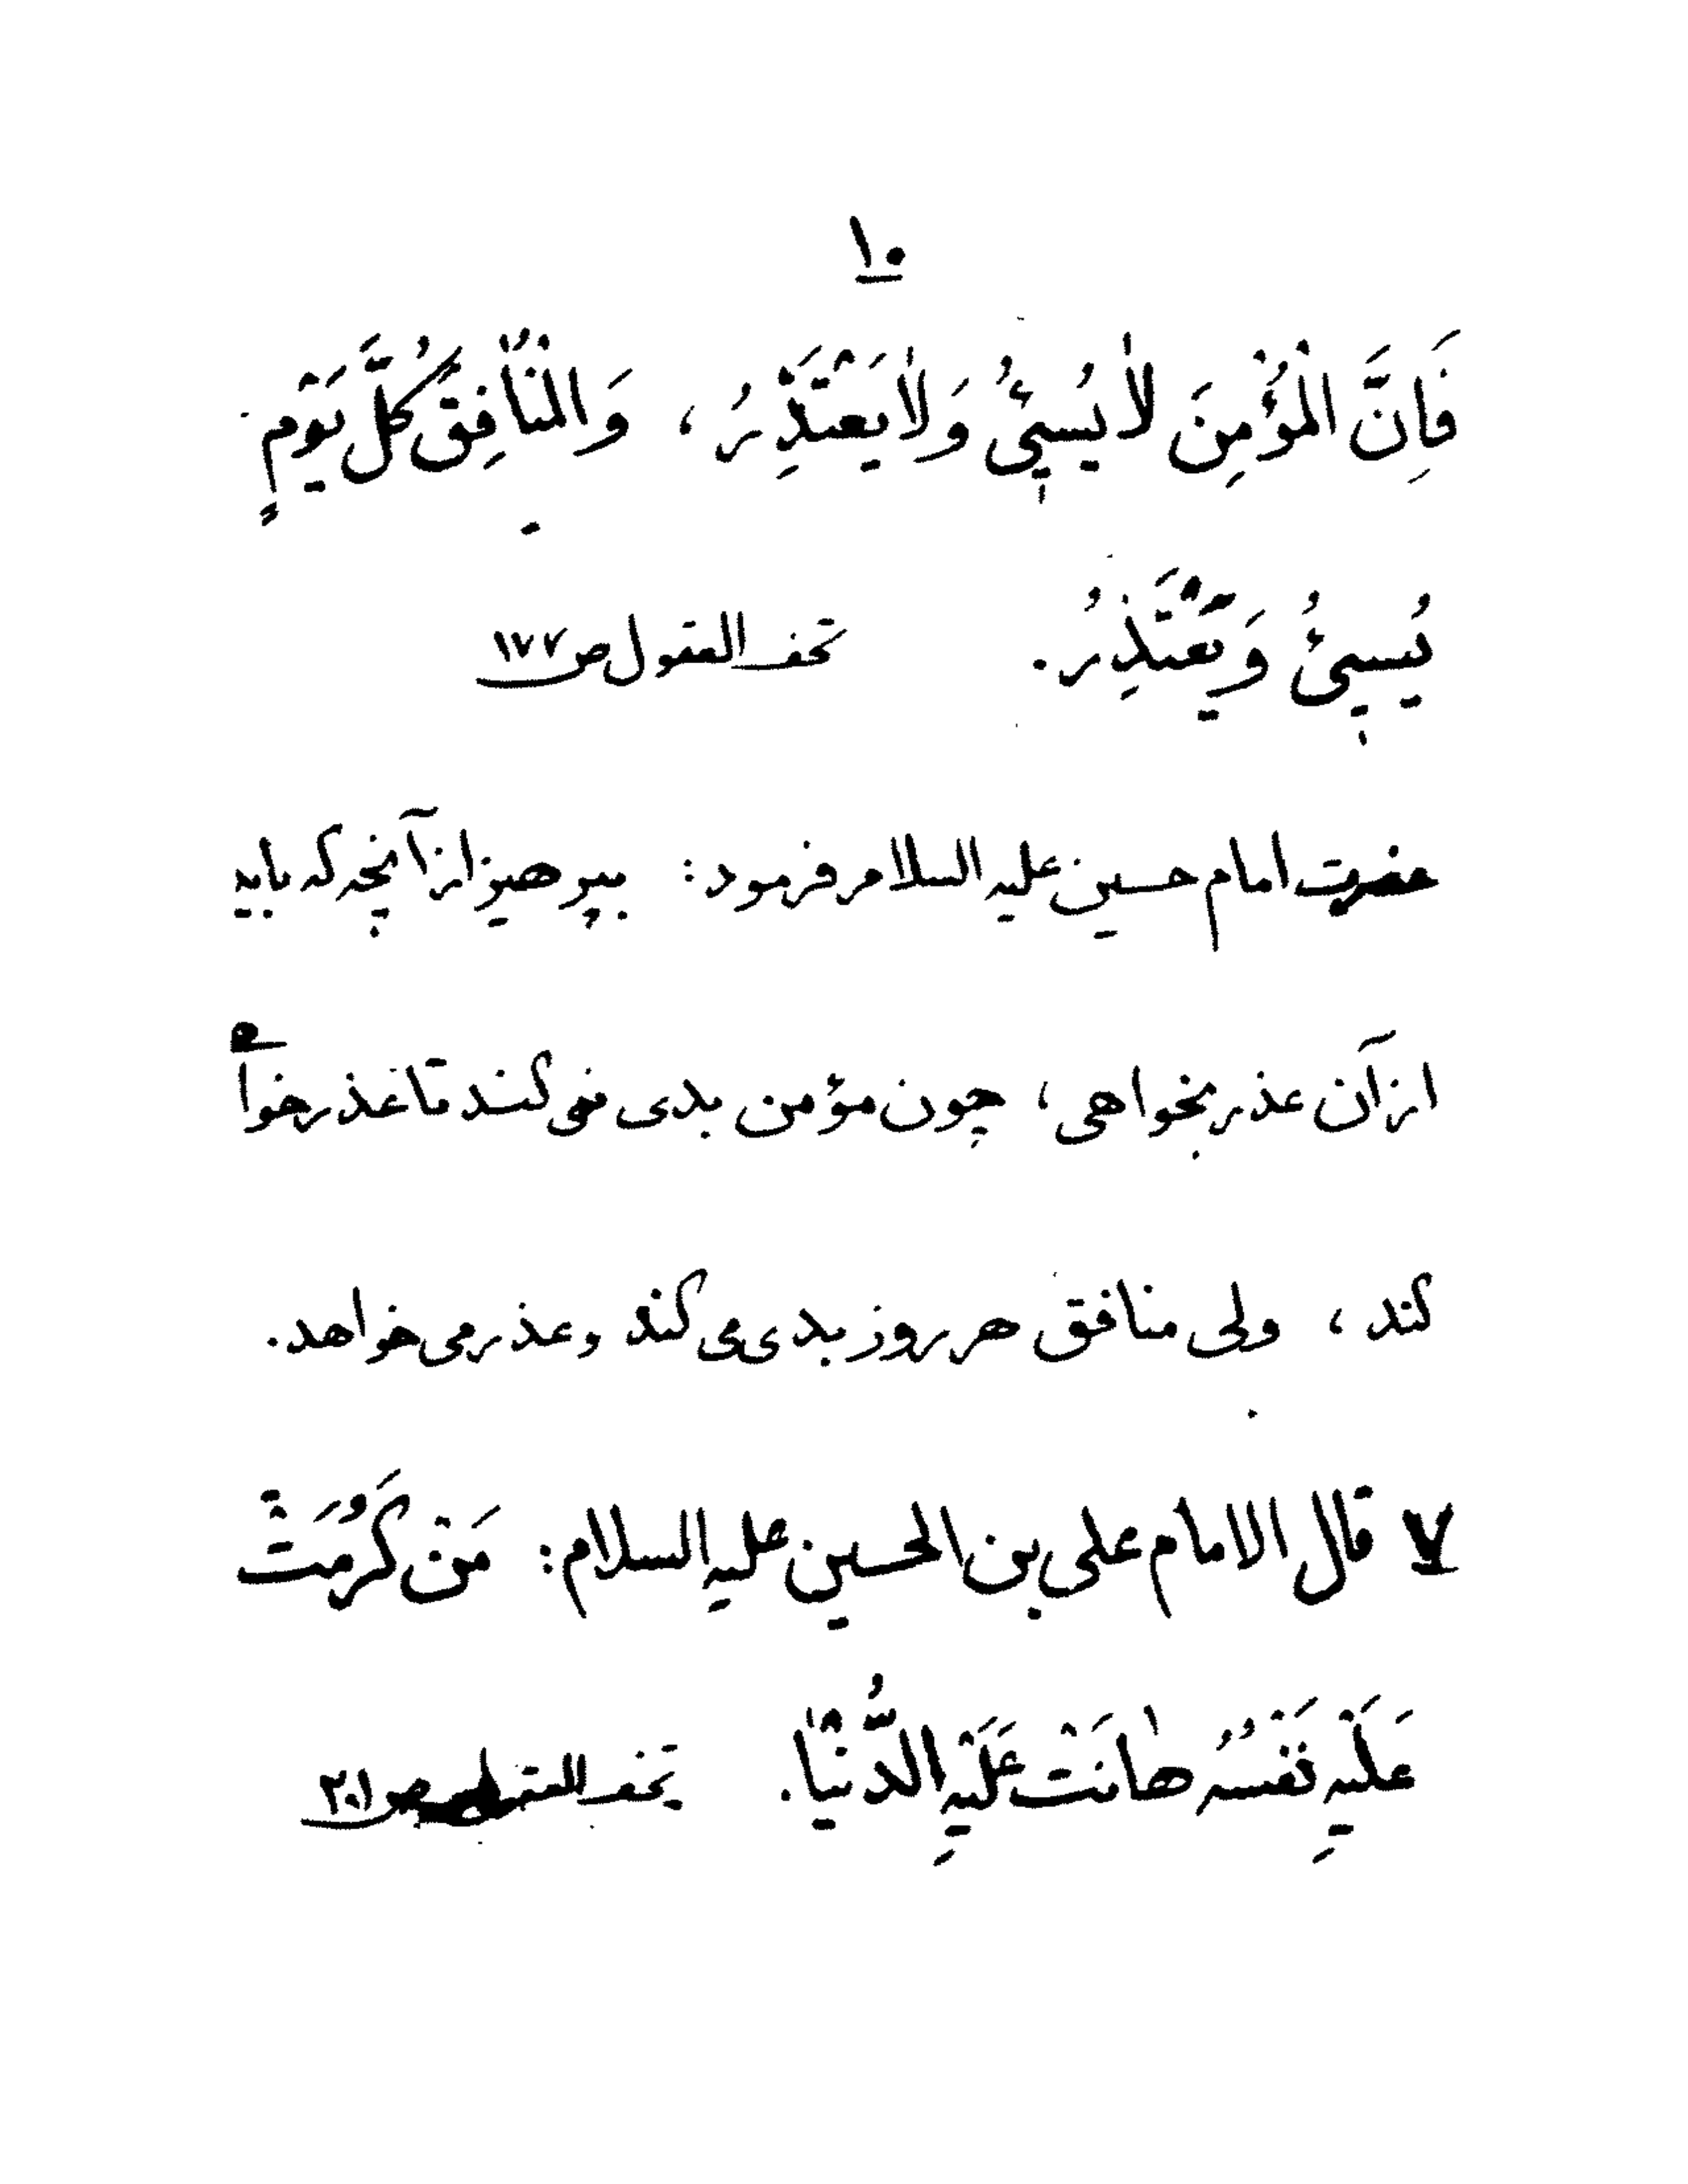 ۱۰
فَاِنَّ الْمُؤْمِنَ لاٰ يُسيئُ وَلاٰ يَعْتَذِرُ، وَالْمُنٰافِقُ كُلَّ يَوْمٍ
يُسيئُ وَيَعْتَذِرُ. تحف العقول ص ۱۷۷
حضرت امام حسین علیه السلام فرمود: بپرهیز از آنچه که باید
از آن عذر بخواهی، چون مؤمن بدی نمی کند تا عذر خواهی
کند، ولی منافق هر روز بدی می کند و عذر می خواهد.
۷ قال الامام علی بن الحسین علیه السلام: مَنْ كَرُمَتْ
عَلَيْهِ نَفْسُهُ هٰانَتْ عَلَيْهِ الدُّنْيٰا. تحف العقول ص ۲۰۱